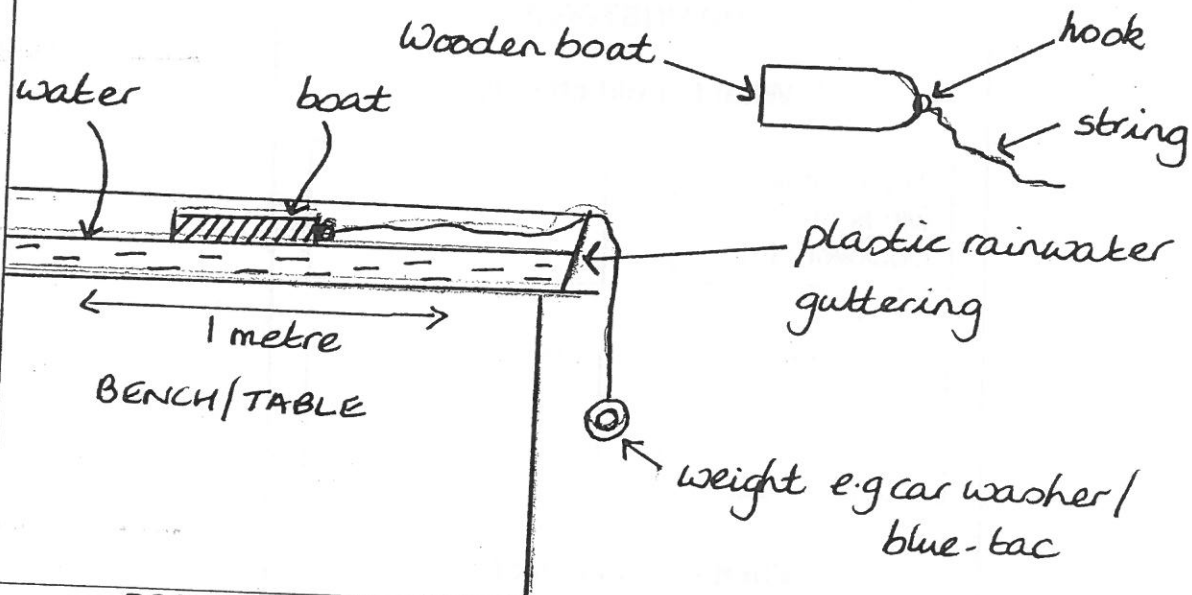 Wooden boat
hook
string
water
boat
plastic rainwater
guttering
1 metre
BENCH/TABLE
weight e.g car washer/
blue-tac